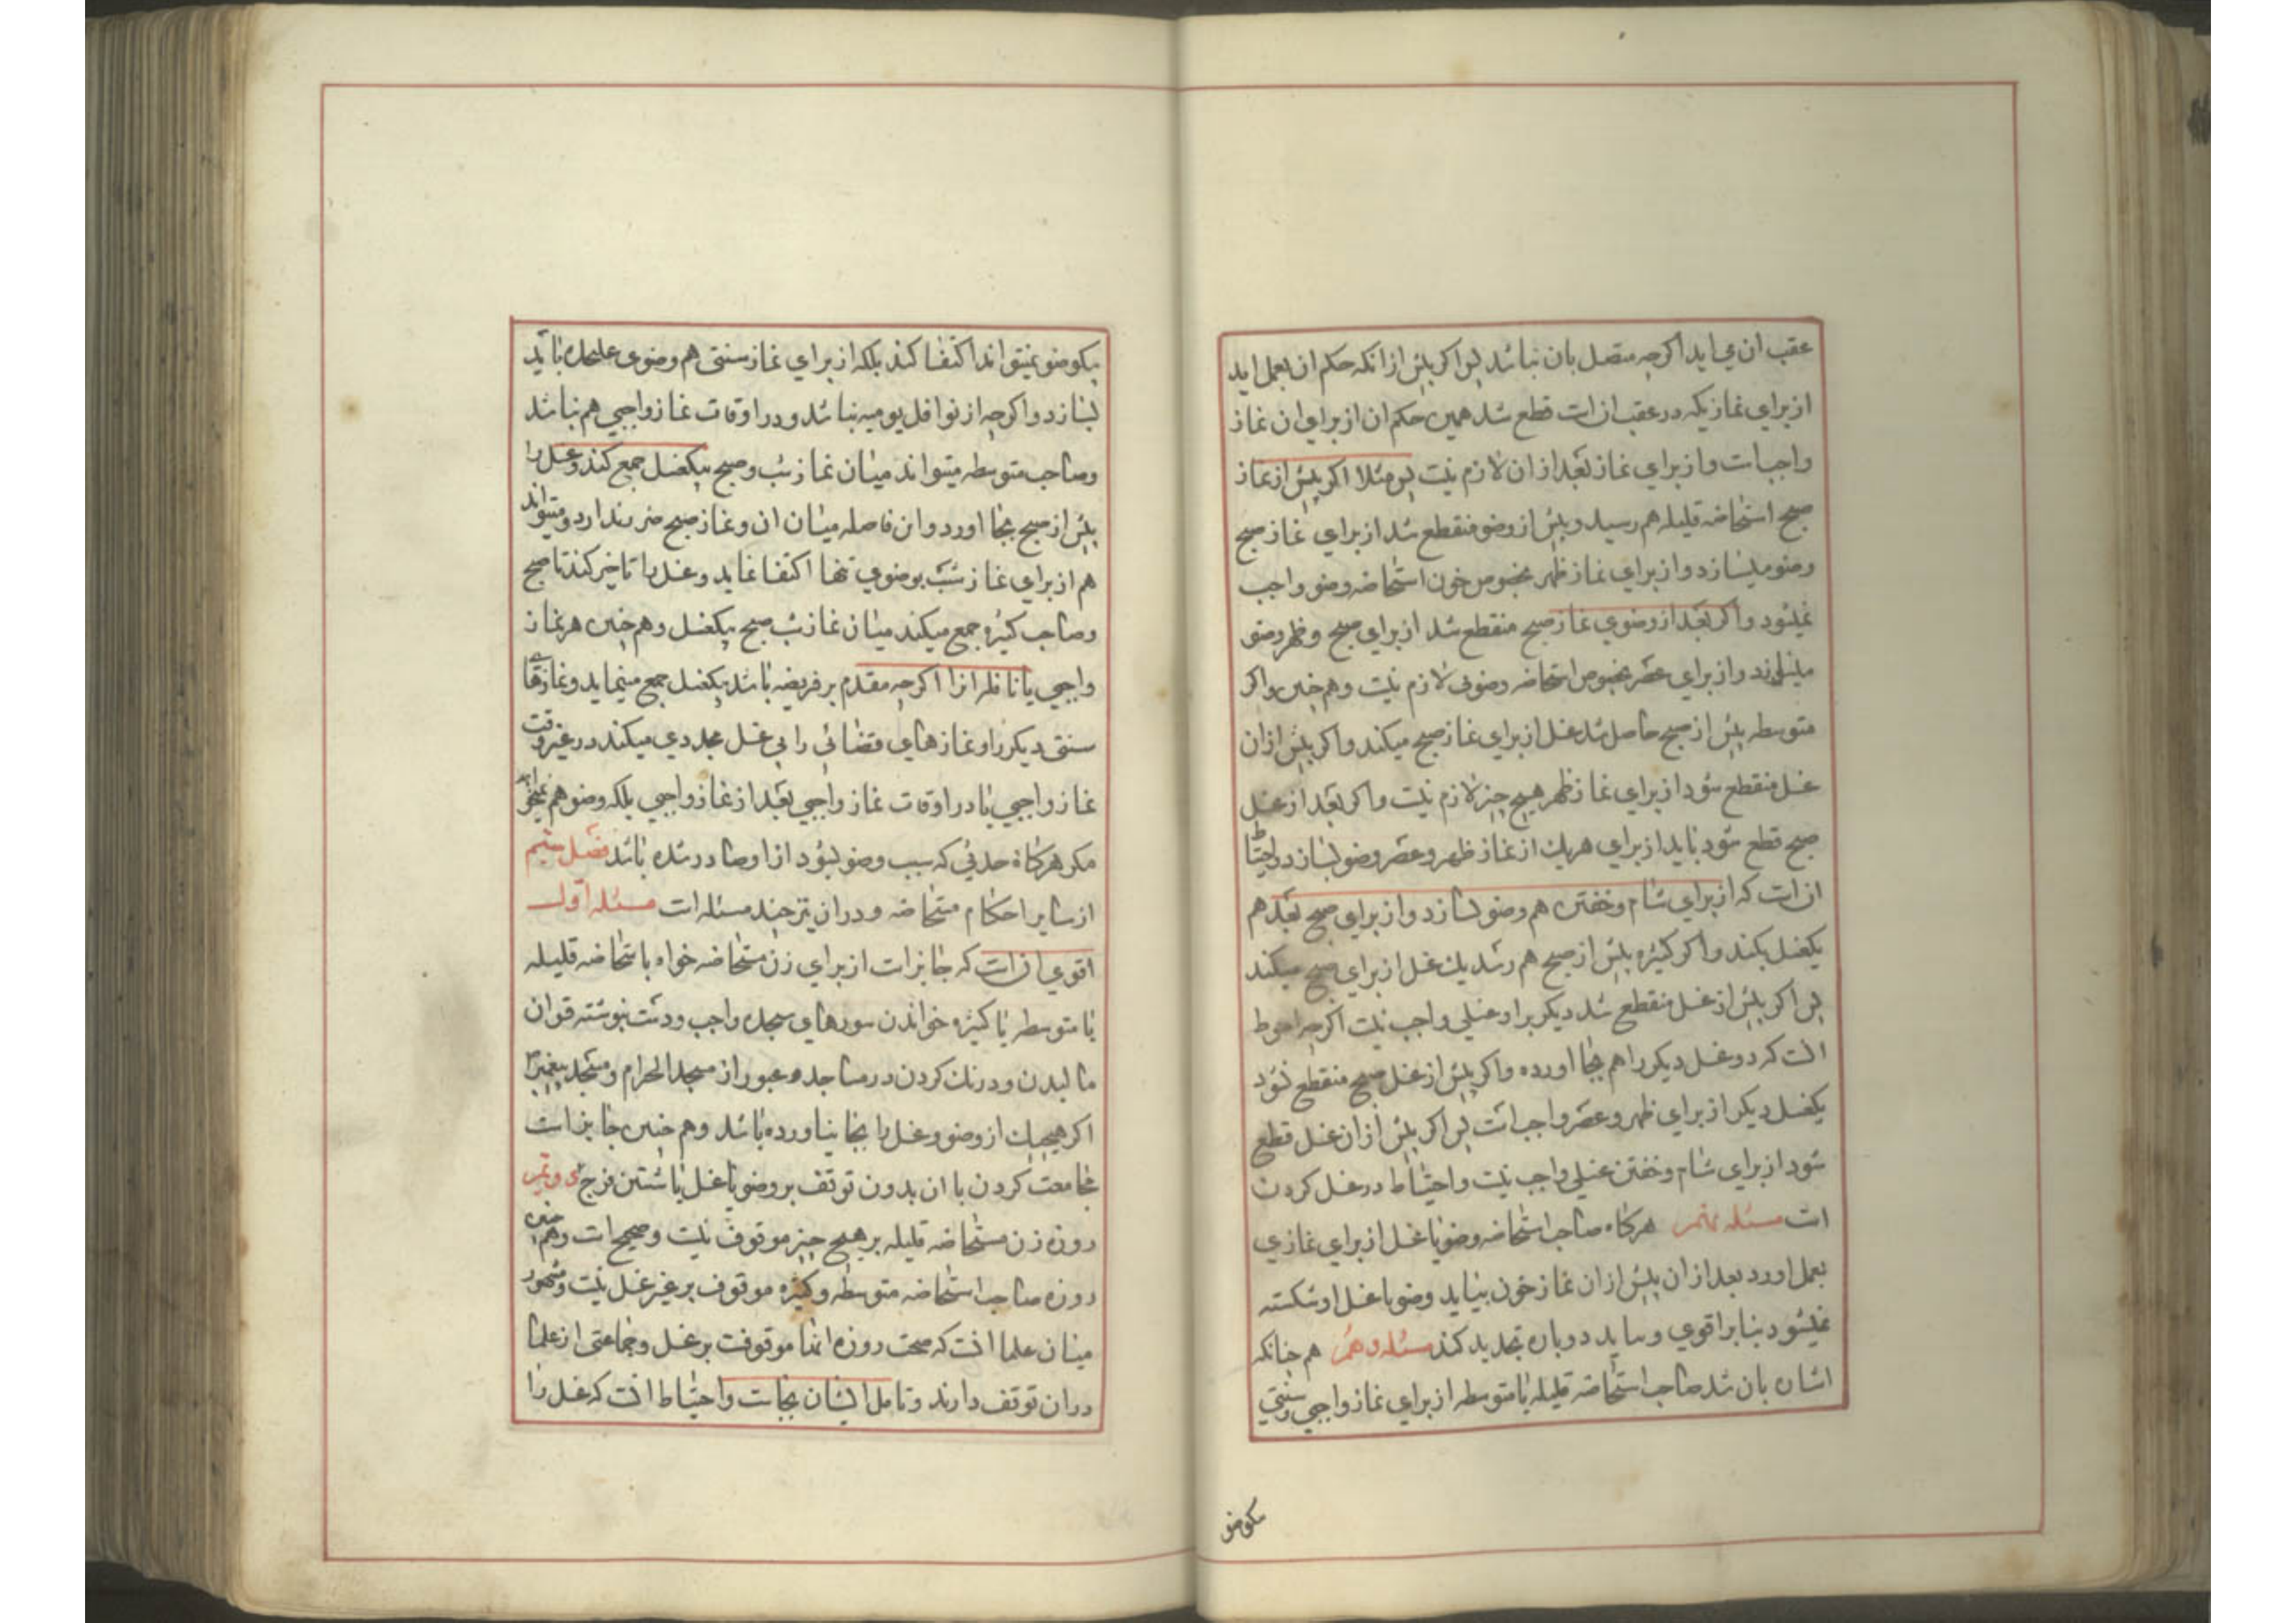 عقب ان می اید اکرچه متصل بان نباشد پس اکر پیش ازانکه حکم ان بعمل اید
از برای نمازیکه در عقب ان است قطع شد همین حکم ان از برای ان نماز
واجبست و از برای نماز بعد از ان لازم نیست پس مثلا اکر پیش از نماز
صبح استحاضه قلیله هم رسید و پیش از وضو منقطع شد از برای نماز صبح
وضو میسازد و از برای نماز ظهر بخصوص خون استحاضه وضو واجب
نمیشود و اکر بعد از وضوی نماز صبح منقطع شد از برای صبح و ظهر وضو
میسازد و از برای عصر بخصوص استحاضه وضوئی لازم نیست و هم چنین و اکر
متوسطه پیش از صبح حاصل شد غسل از برای نماز صبح میکند و اکر پیش ازان
غسل منقطع شود از برای نماز ظهر هیچ چیز لازم نیست و اکر بعد از غسل
صبح قطع شود باید از برای هریک از نماز ظهر و عصر وضو بسازد و احتیاط
ان است که از برای شام و خفتن هم وضو بسازد و از برای صبح بعد هم
یکغسل بکند و اکر کثیره پیش از صبح هم رسد یک غسل از برای صبح میکند
پس اکر پیش از غسل منقطع شد دیکر بر او غسلی واجب نیست اکرچه احوط
انست که دو غسل دیکر را هم بجا اورده و اکر پیش از غسل صبح منقطع نشود
یکغسل دیکر از برای ظهر و عصر واجب است پس اکر پیش ازان غسل قطع
شود از برای شام و خفتن غسلی واجب نیست و احتیاط در غسل کردن
است مسئله نهم هرکاه صاحب استحاضه وضو یا غسل از برای نمازی
بعمل اورد بعد ازان پیش ازان نماز خون بیاید وضو یا غسل او شکسته
نمیشود بنا بر اقوی و نباید دوباره تجدید کند مسئله دهم هم چنانکه
اشاره بان شد صاحب استحاضه قلیله یا متوسطه از برای نماز واجبی و سنتی
یکوضو
یکوضو نمیتواند اکتفا کند بلکه از برای نماز سنتی هم وضوی علیحده باید
بسازد و اکرچه از نوافل یومیه نباشد و در اوقات نماز واجبی هم نباشد
و صاحب متوسطه میتواند میان نماز شب و صبح بیکغسل جمع کند و غسل را
پیش از صبح بجا اورد و این فاصله میان ان و نماز صبح ضرر ندارد و میتواند
هم از برای نماز شب بوضوی تنها اکتفا نماید و غسل را تاخیر کند تا صبح
و صاحب کثیره جمع میکند میان نماز شب صبح بیکغسل و هم چنین هر نماز
واجبی با نافله انرا اکرچه مقدم بر فریضه باشد بیکغسل جمع مینماید و نمازهای
سنتی دیکر را و نمازهای قضائی را بی غسل مجددی میکند در غیر وقت
نماز واجبی یا در اوقات نماز واجبی بعد از نماز واجبی بلکه وضو هم نمیخواهد
مکر هرکاه حدثی که سبب وضو بشود از او صادر شده باشد فصل ششم
از سایر احکام مستحاضه و دران نیز چند مسئله است مسئله اول
اقوی ان است که جایز است از برای زن مستحاضه خواه باستحاضه قلیله
یا متوسطه یا کثیره خواندن سورهای سجده واجب و دست بنوشته قران
مالیدن و درنک کردن در مساجد و عبور از مسجد الحرام و مسجد پیغمبر
اکر هیچیک از وضو و غسل را بجا نیاورده باشد و هم چنین جایز است
مجامعت کردن با ان بدون توقف بر وضو یا غسل یا شستن فرج
روزه زن مستحاضه قلیله بر هیچ چیز موقوف نیست و صحیح است و هم چنین
روزه صاحب استحاضه متوسطه و کثیره موقوف بر غیر غسل نیست و مشهور
میان علما انست که صحت روزه انها موقوفست بر غسل و جماعتی از علما
دران توقف دارند و تامل ایشان بجاست و احتیاط انست که غسل را